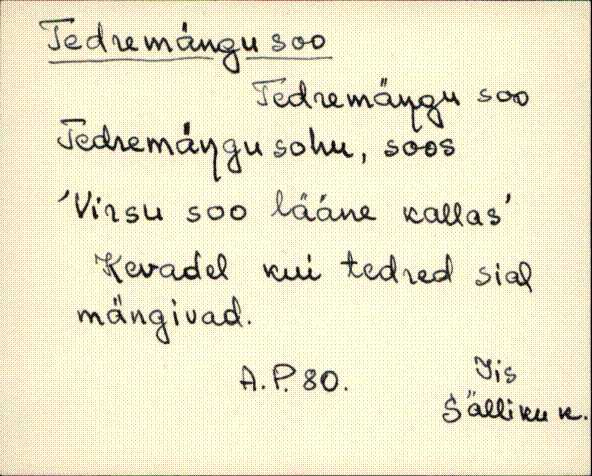 Tedremängu soo
Tedremäŋgu soo
Tedremäŋgu sohu, soos
'Virsu soo lääne kallas'
Kevadel kui tedred sial
mängivad.
A.P. 80. Iis
Sälliku k.